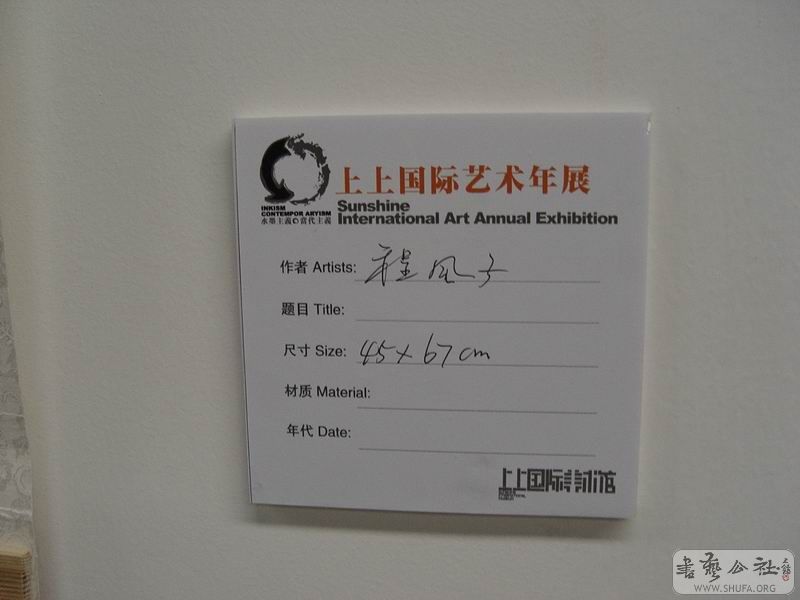 上上国际艺术年展
Sunshine
International Art Annual Exhibition
INKISM
CONTEMPOR ARYISM
水墨主義 當代主義
作者 Artists: 程风子
题目 Title:
尺寸 Size: 45×67cm
材质 Material:
年代 Date:
上上国际美术馆
書藝公社
WWW.SHUFA.ORG